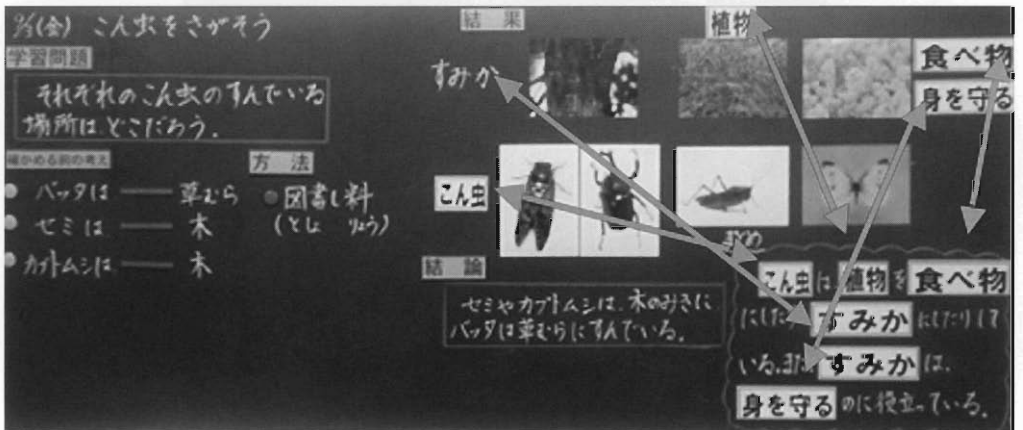 9/3(金) こん虫をさがそう
学習問題
それぞれのこん虫のすんでいる
場所は、どこだろう。
確かめる前の考え
バッタは ── 草むら
セミは ── 木
カブトムシは ── 木
方 法
図書し料
(としょ りょう)
結 果
植物
すみか
食べ物
身を守る
こん虫
結 論
セミやカブトムシは、木のみきに
バッタは草むらにすんでいる。
まとめ
こん虫は植物を食べ物
にしたり すみか にしたりして
いる。また すみか は、
身を守る のに役立っている。